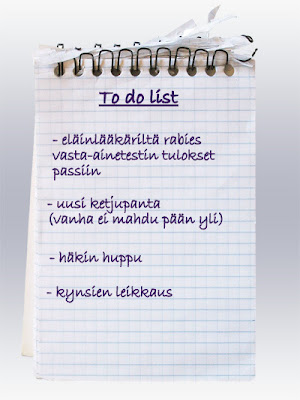 To do list
- eläinlääkäriltä rabies
vasta-ainetestin tulokset
passiin
- uusi ketjupanta
(vanha ei mahdu pään yli)
- häkin huppu
- kynsien leikkaus